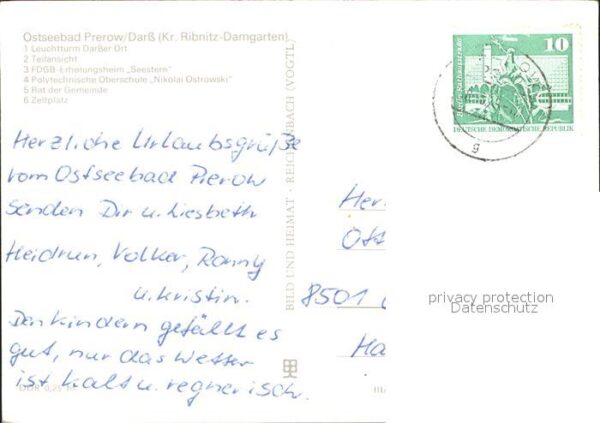 Ostseebad Prerow/Darß (Kr. Ribnitz-Damgarten)
1 Leuchtturm Darßer Ort
2 Teilansicht
3 FDGB-Erholungsheim „Seestern“
4 Polytechnische Oberschule „Nikolai Ostrowski“
5 Rat der Gemeinde
6 Zeltplatz
Herzliche Urlaubsgrüße
vom Ostseebad Prerow
senden Dir u. Liesbeth
Heidrun, Volker, Ronny
u. Kristin.
Den Kindern gefällt es
gut, nur das Wetter
ist kalt u. regnerisch.
BILD UND HEIMAT · REICHENBACH (VOGTL
10
DEUTSCHE DEMOKRATISCHE REPUBLIK
Her
Ost
8501
Ha
privacy protection
Datenschutz